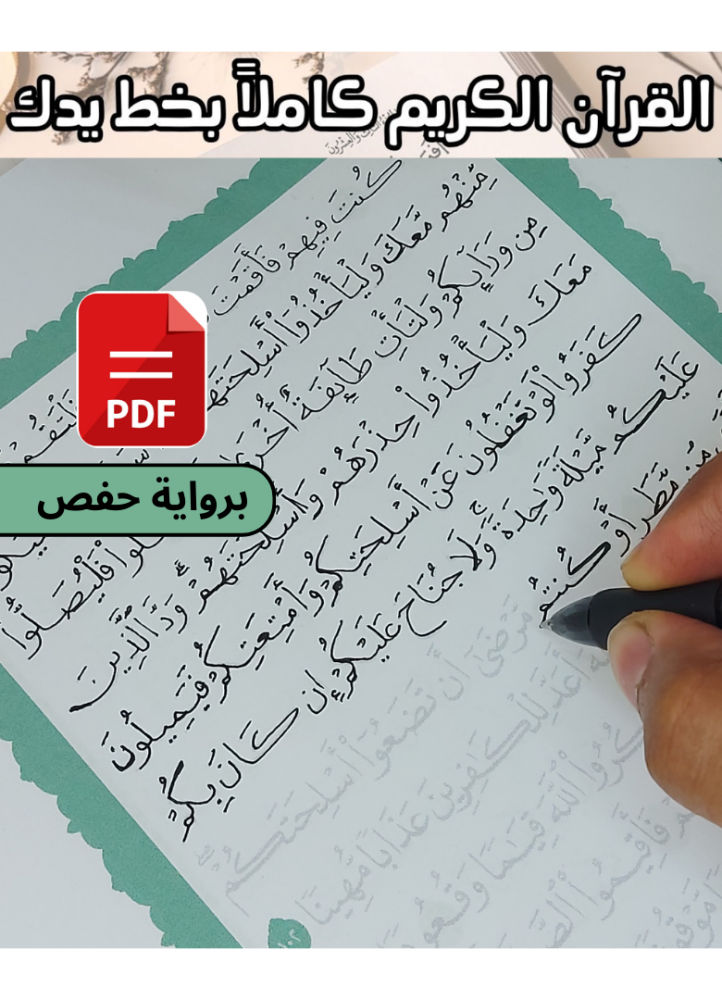 القرآن الكريم كاملاً بخط يدك
كُنتَ فِيهِمْ فَأَقَمْتَ فَلْتَقُمْ
مِّنْهُم مَّعَكَ وَلْيَأْخُذُوٓا۟ أَسْلِحَتَهُ
مِن وَرَآئِكُمْ وَلْتَأْتِ طَآئِفَةٌ أُخْرَىٰ فَلْيُصَلُّوا۟
مَعَكَ وَلْيَأْخُذُوا۟ حِذْرَهُمْ وَأَسْلِحَتَهُمْ ۗ وَدَّ ٱلَّذِينَ
كَفَرُوا۟ لَوْ تَغْفُلُونَ عَنْ أَسْلِحَتِكُمْ وَأَمْتِعَتِكُمْ فَيَمِيلُونَ
عَلَيْكُم مَّيْلَةً وَٰحِدَةً ۚ وَلَا جُنَاحَ عَلَيْكُمْ إِن كَانَ بِكُمْ
مِّن مَّطَرٍ أَوْ كُنتُم مَّرْضَىٰٓ أَن تَضَعُوٓا۟ أَسْلِحَتَكُمْ
أَعَدَّ لِلْكَٰفِرِينَ عَذَابًا مُّهِينًا
ٱللَّهَ قِيَٰمًا وَقُعُودًا
فَأَقِيمُوا۟
١٠٢
PDF
برواية حفص